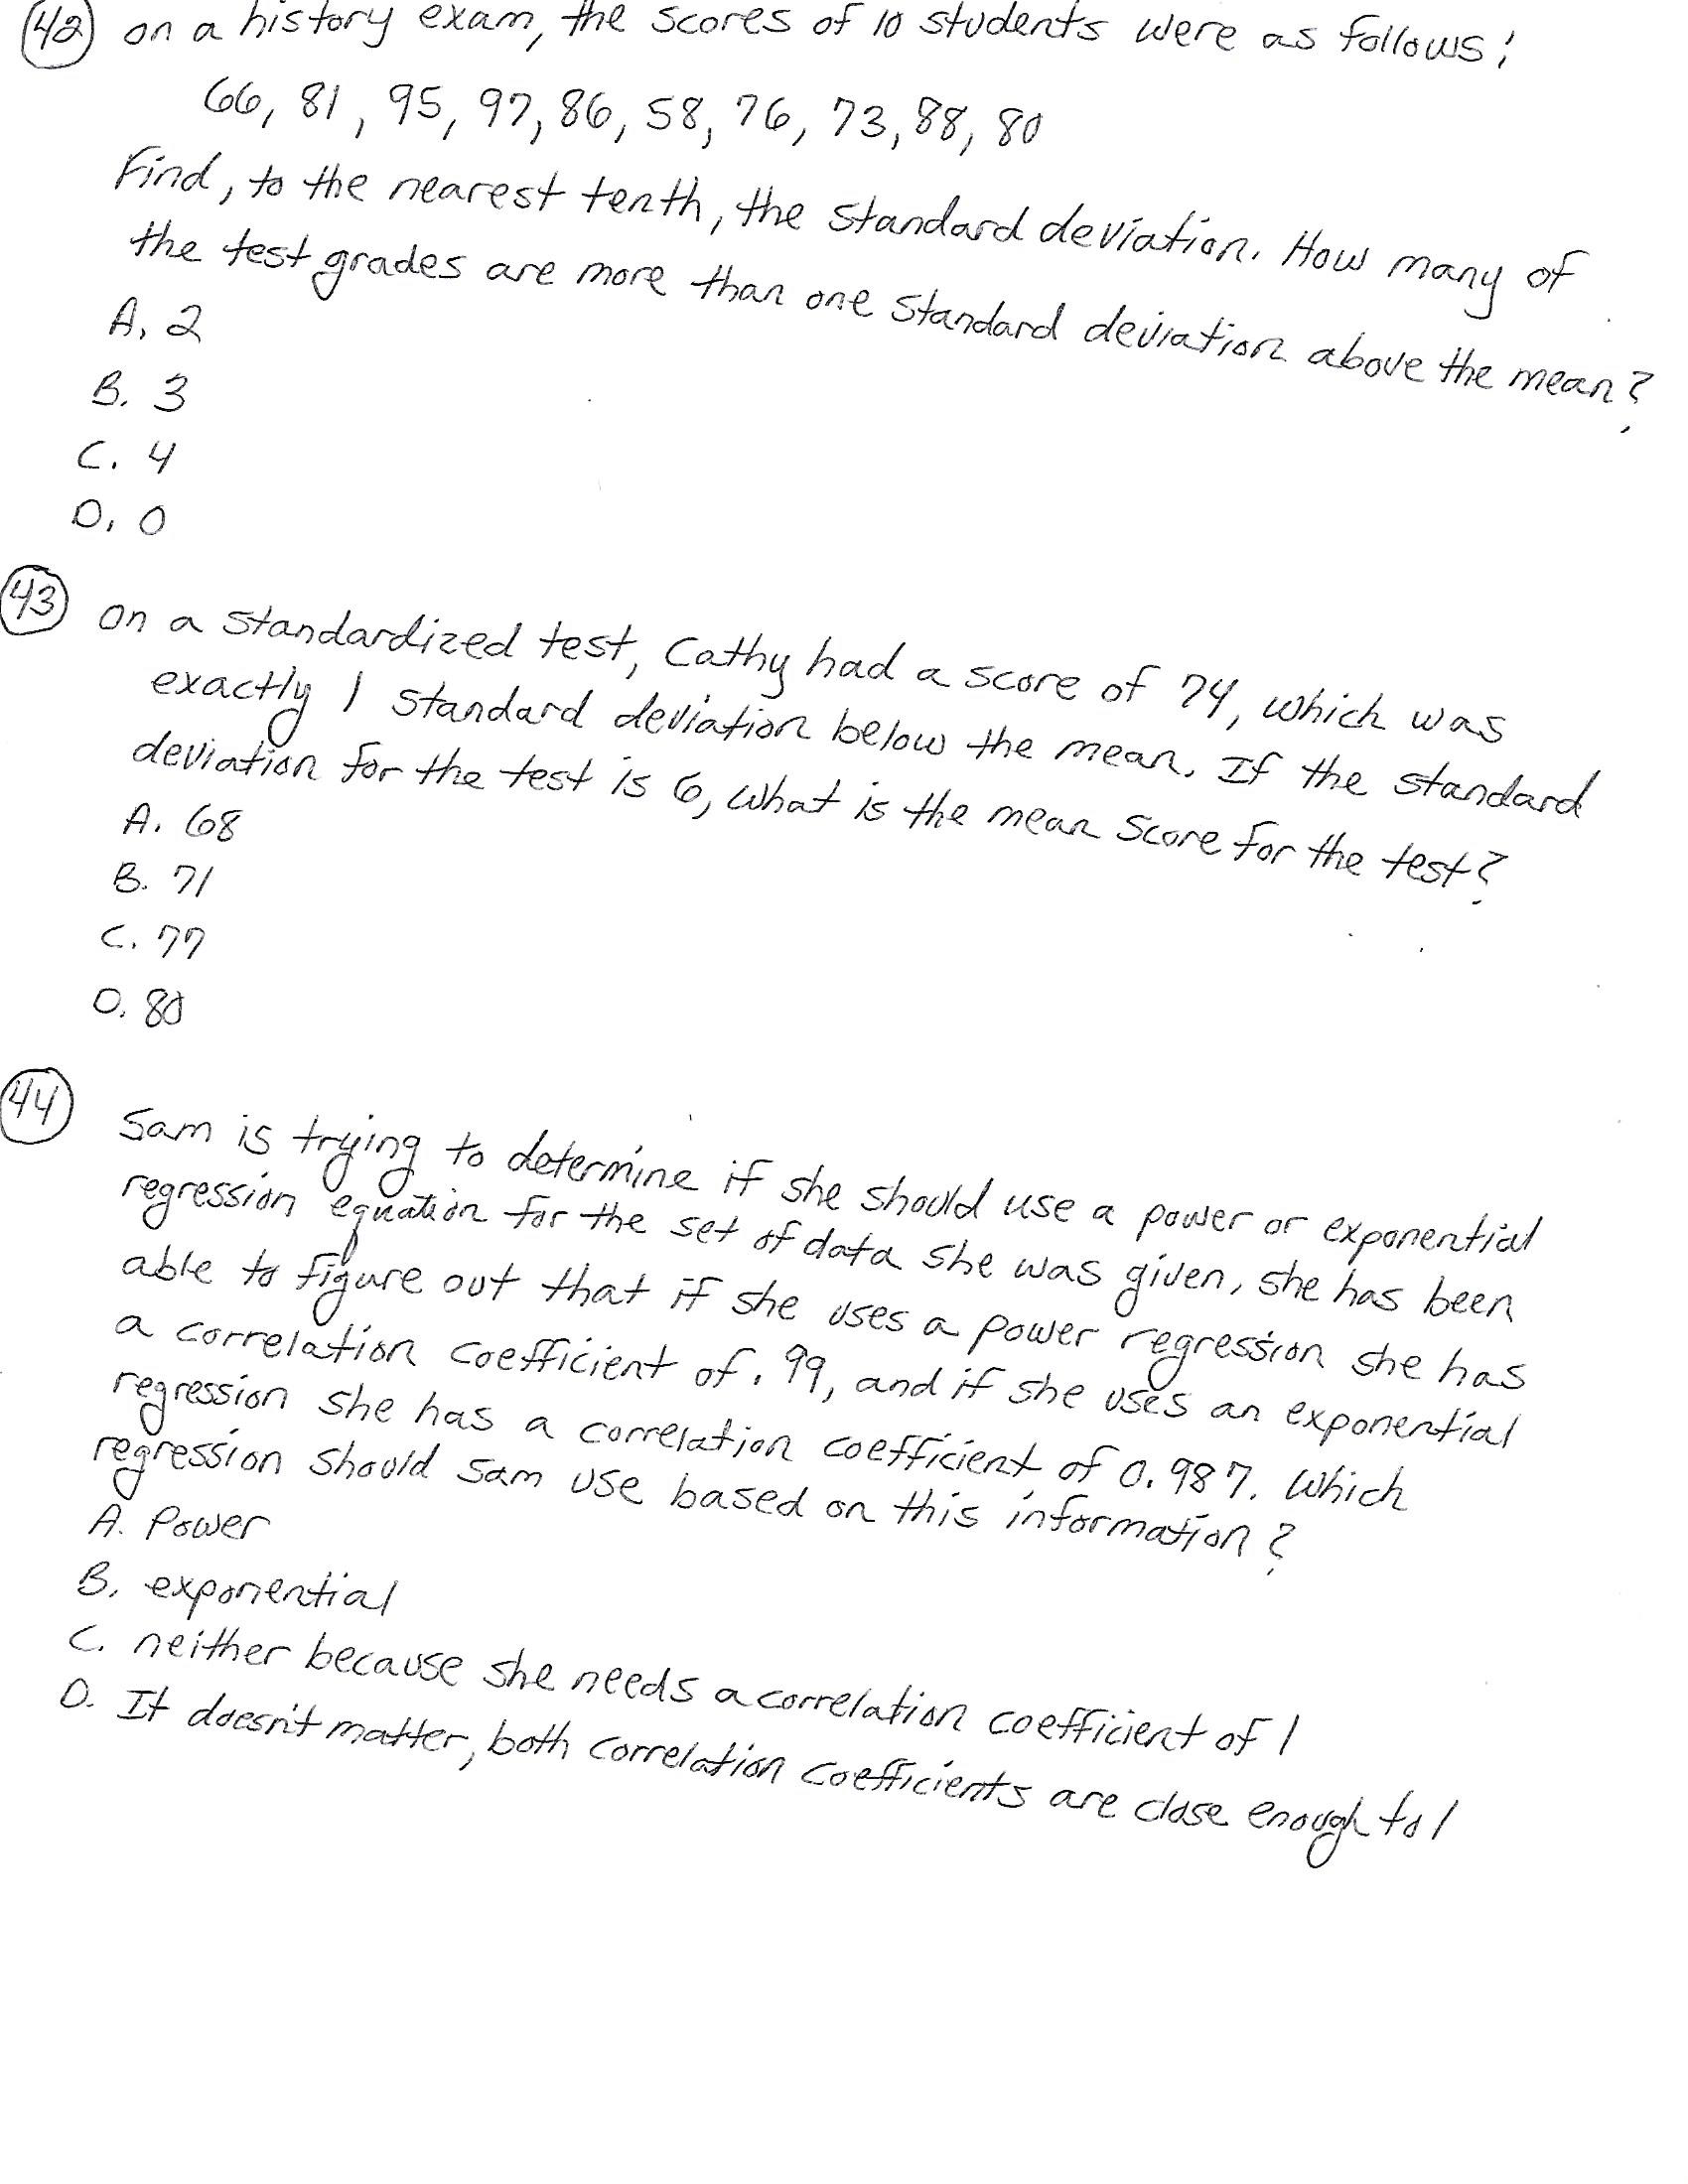 42 on a history exam, the scores of 10 students were as follows:
66, 81, 95, 97, 86, 58, 76, 73, 88, 80
Find, to the nearest tenth, the standard deviation. How many of
the test grades are more than one standard deviation above the mean?
A. 2
B. 3
C. 4
D. 0
43 on a standardized test, Cathy had a score of 74, which was
exactly 1 standard deviation below the mean. If the standard
deviation for the test is 6, what is the mean score for the test?
A. 68
B. 71
C. 77
D. 80
44 Sam is trying to determine if she should use a power or exponential
regression equation for the set of data she was given, she has been
able to figure out that if she uses a power regression she has
a correlation coefficient of .99, and if she uses an exponential
regression she has a correlation coefficient of 0.987. Which
regression should Sam use based on this information?
A. Power
B. exponential
C. neither because she needs a correlation coefficient of 1
D. It doesn't matter, both correlation coefficients are close enough to 1